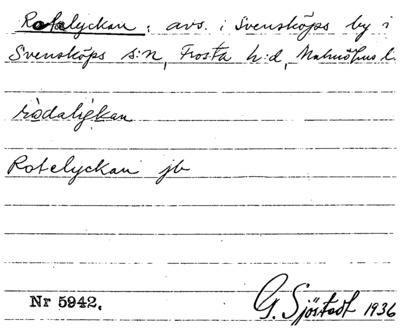 Rotelyckan: avs. i Svensköps by i
Svensköps s:n, Frosta h:d, Malmöhus l.
Rotelyckan jb
Nr 5942.
G. Sjöstedt 1936